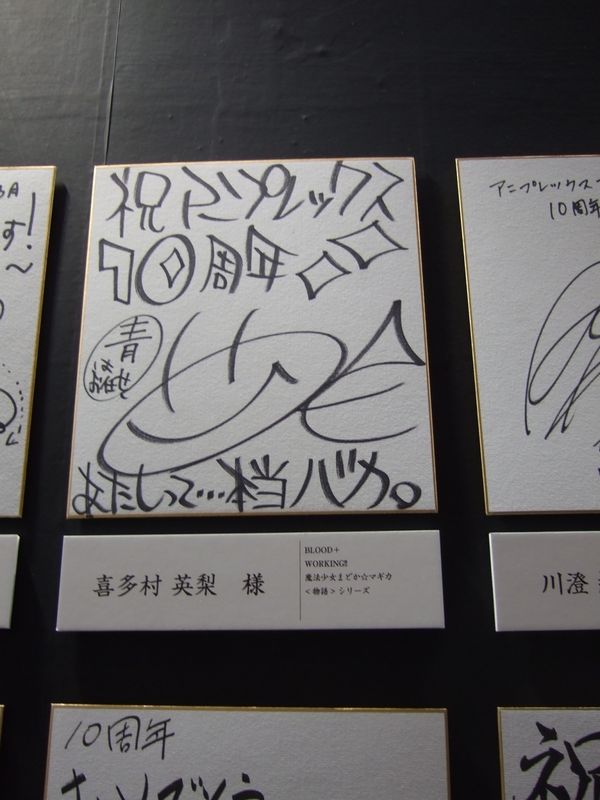 す!
～
祝アニプレックス
10周年
青
あたしって…本当バカ。
喜多村 英梨 様
BLOOD+
WORKING!!
魔法少女まどか☆マギカ
＜物語＞シリーズ
アニプレックス
10周年
川澄
10周年
祝